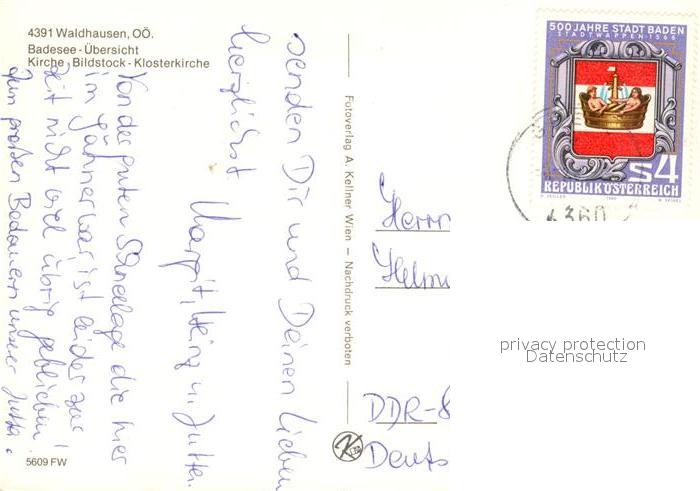 4391 Waldhausen, OÖ.
Badesee - Übersicht
Kirche, Bildstock - Klosterkirche
senden Dir und Deinen Lieben
herzlichst
Margit, Heinz u. Jutta.
Von der guten Schneelage die hier
im Jänner war, ist leider zur
Zeit nicht viel übrig geblieben!
Zum großen Bedauern unserer Jutta.
5609 FW
Fotoverlag A. Kellner Wien – Nachdruck verboten
500 JAHRE STADT BADEN
STADTWAPPEN 1566
S4
REPUBLIK ÖSTERREICH
4360
Herrn
Helm
DDR-8
Deuts
privacy protection
Datenschutz